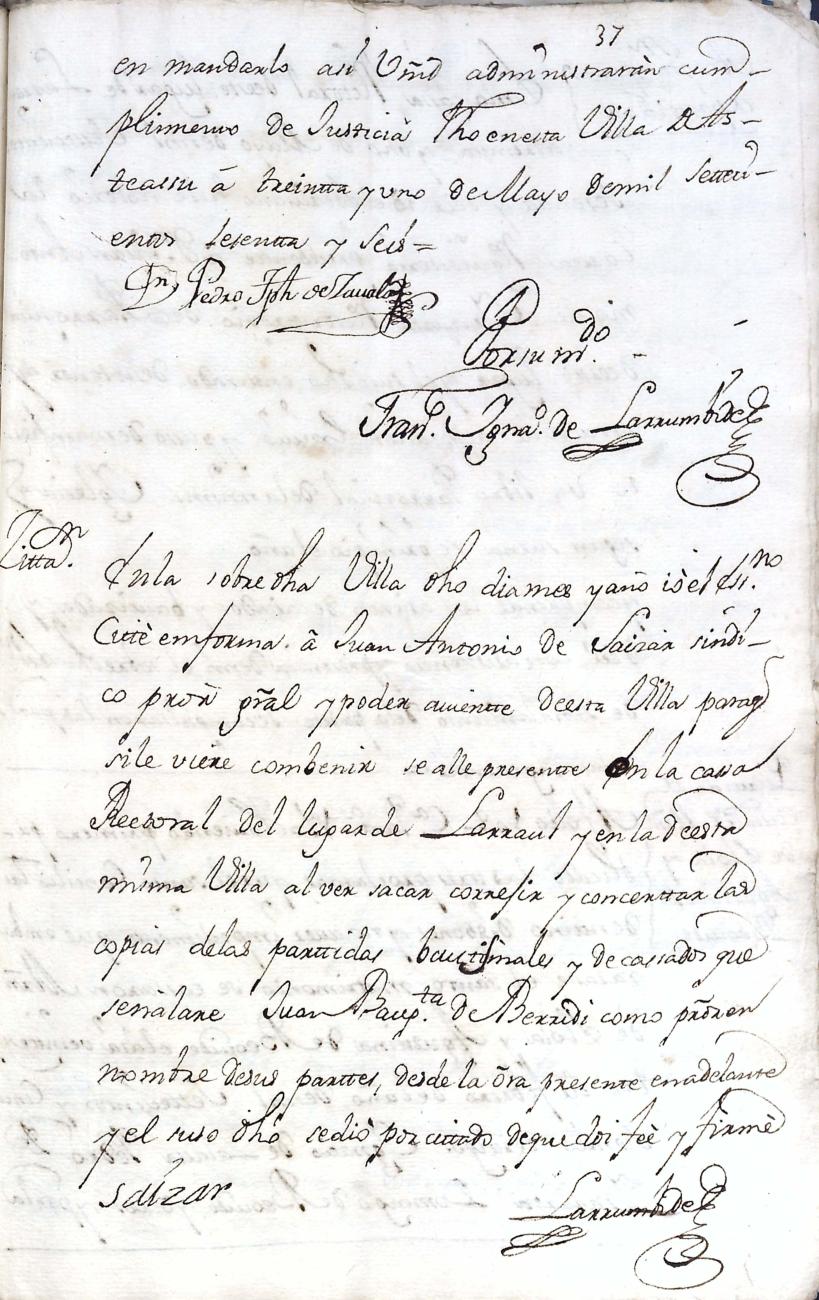 37
en mandarlo asi Vmd administraràn cum-
plimiento de Justicia fho en esta Villa de As-
teassu â treintta y uno de Mayo de mil settezi-
entos sesentta y seis =
Dn Pedro Jph de Zavala
Por su mdo.
Franco. Ignao. de Larrumbide
Zittan.
En la sobre dha Villa dho dia mes y año io el Essno
Citè em forma â Juan Antonio de Saizar sindi-
co pror gral y poder aviente de esta Villa paraq
si le viere combenir se alle presentte En la cassa
Rectoral del lugar de Larraul y en la de esta
misma Villa al ver sacar correjir y concerttar las
copias de las parttidas bautismales y de cassados que
señalare Juan Bapta. de Berridi como pror en
nombre de sus parttes, desde la ôra presente en adelante
y el suso dho se diò por cittado de que doi feè y firmè
Saizar
Larrumbide